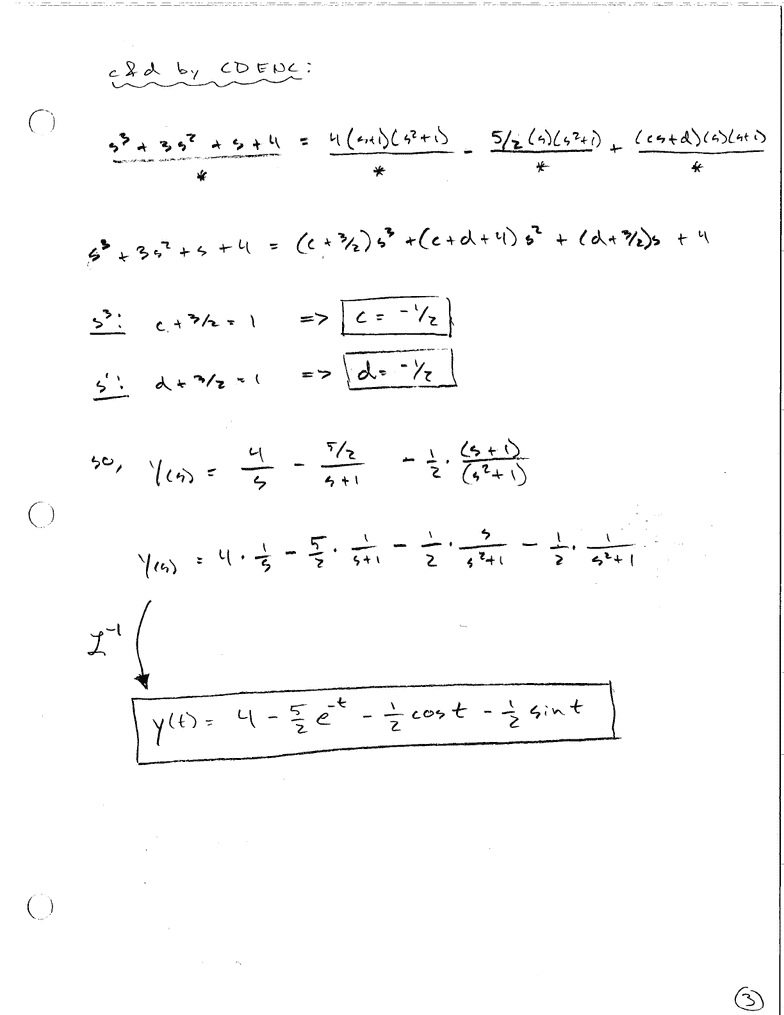 c & d by CDENC:
s³ + 3s² + s + 4 / * = 4(s+1)(s²+1) / * - 5/2 (s)(s²+1) / * + (cs+d)(s)(s+1) / *
s³ + 3s² + s + 4 = (c + 3/2) s³ + (c+d+4) s² + (d+3/2)s + 4
s³: c + 3/2 = 1 => c = -1/2
s¹: d + 3/2 = 1 => d = -1/2
so, Y(s) = 4/s - 5/2 / s+1 - 1/2 · (s+1)/(s²+1)
Y(s) = 4 · 1/s - 5/2 · 1/s+1 - 1/2 · s/s²+1 - 1/2 · 1/s²+1
ℒ⁻¹
y(t) = 4 - 5/2 e⁻ᵗ - 1/2 cos t - 1/2 sin t
3